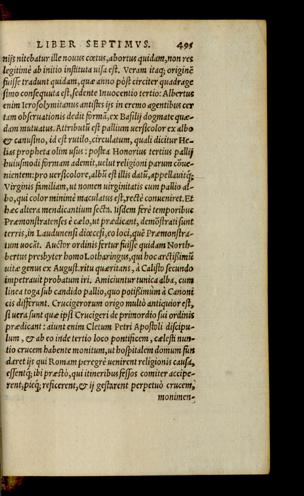 LIBER SEPTIMVS. 495
nijs nitebatur ille nouus cœtus, abortus quidam, non res
legitimè ab initio instituta uisa est. Veram itaq; originē
fuisse tradunt quidam, quæ anno pòst circiter quadrage
simo consequuta est, sedente Inuocentio tertio: Albertus
enim Ierosolymitanus antistes ijs in eremo agentibus cer
tam obseruationis dedit formā, ex Basilij dogmate quæ-
dam mutatus. Attributū est pallium uersicolor ex albo
& canusino, id est rutilo, circulatum, quali dicitur He-
lias propheta olim usus: posteà Honorius tertius pallij
huiusmodi formam ademit, uelut religioni parum cōue-
nientem: pro uersicolore, albū est illis datū, appellauitq;
Virginis familiam, ut nomen uirginitatis cum pallio al-
bo, qui color minimè maculatus est, rectè conueniret. Et
hæc altera mendicantium secta. Iisdem ferè temporibus
Præmonstratenses è cælo, ut prædicant, demōstrati sunt
terris, in Laudunensi diœcesi, eo loci, quē Præmonstra-
tum uocāt. Auctor ordinis fertur fuisse quidam North-
bertus presbyter homo Lotharingus, qui hoc arctißimū
uitæ genus ex August. ritu quæritans, à Calisto secundo
impetrauit probatum iri. Amiciuntur tunica alba, cum
linea toga sub candido pallio, quo potißimùm à Canoni
cis differunt. Crucigerorum origo multò antiquior est,
si uera sunt quæ ipsi Crucigeri de primordio sui ordinis
prædicant: aiunt enim Cletum Petri Apostoli discipu-
lum, & ab eo inde tertio loco pontificem, cælesti nun-
tio crucem habente monitum, ut hospitalem domum fun
daret ijs qui Romam peregrè uenirent religionis causa,
essentq; ibi præstò, qui itineribus fessos comiter accipe-
rent, pieq; reficerent, & ij gestarent perpetuò crucem,
monimen-